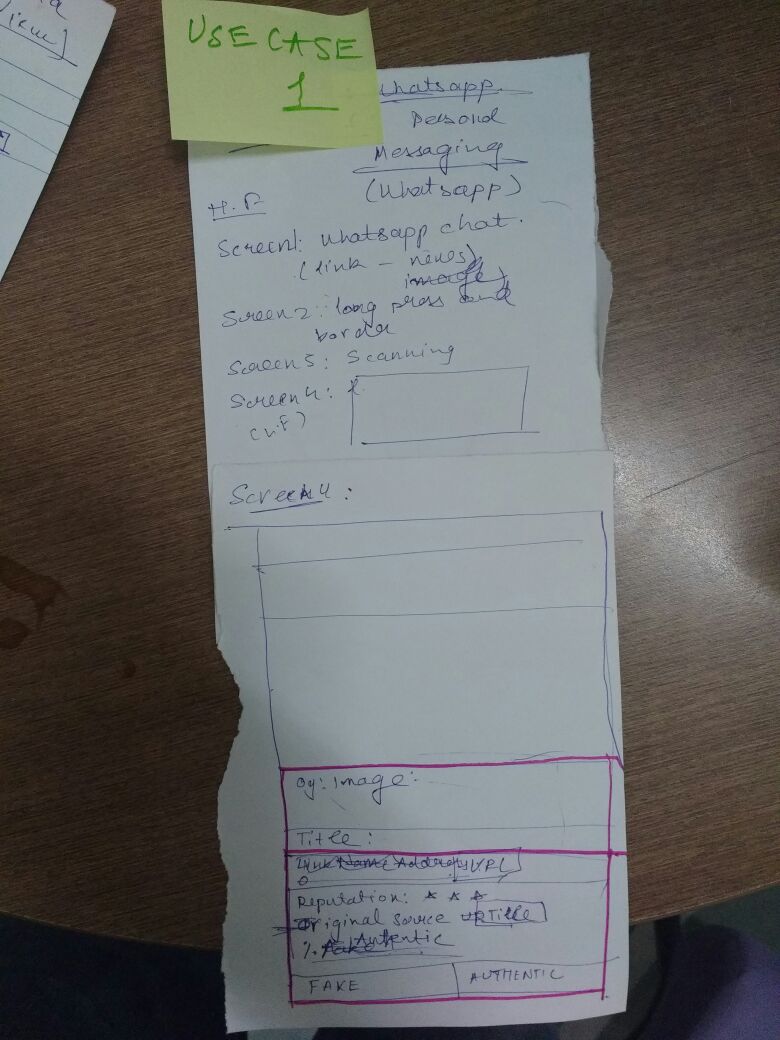 View]
USE CASE
1
Whatsapp
Personal
Messaging
(Whatsapp)
H.F
Screen1: Whatsapp chat.
(link - news)
image)
Screen2: long press and
border
Screen3: Scanning
Screen4:
Screen4:
Og: Image:
Title:
Link Name Address URL
Reputation: ★ ★ ★
Original source Title
%. Fake Authentic
FAKE
AUTHENTIC